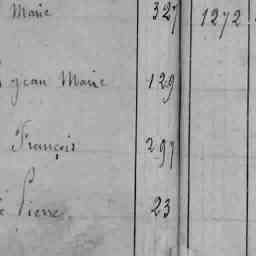 Marie 327 1272
Jean Marie 129
François 297
Pierre 23